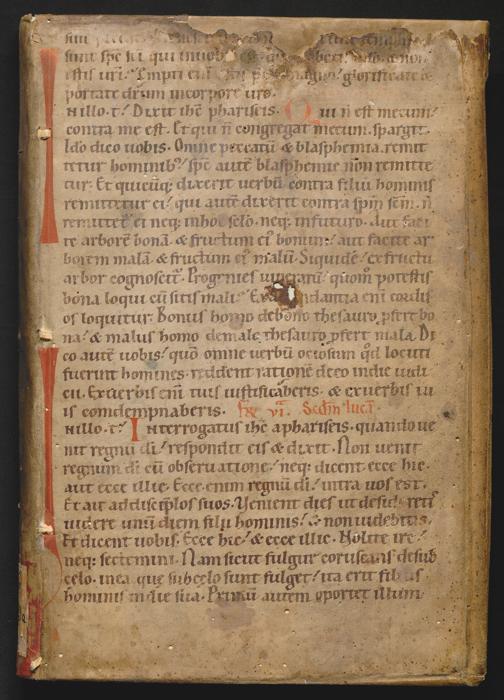 sunt spe sci qui inuob
istis uri. Empti eni pcio magno glorificate &
portate dnm incorpore uro.
N illo. t. Dixit ihc phariseis. Qui n est mecum
contra me est. Et qui n congregat mecum. spargit.
Ido dico uobis. Omne peccatu & blasphemia remit
tetur hominib; spc aute blasphemie non remitte
tur. Et quicuq; dixerit uerbu contra filiu hominis
remittetur ei. qui aute dixerit contra spm scm. n
remittet ei neq; inhoc sclo. neq; infuturo. Aut faci
te arbore bona. & fructum ei bonum. aut facite ar
borem mala. & fructum ei malu. Siquide exfructu
arbor cognoscit. Progenies uiperaru quom potestis
bona loqui cu sitis mali. Ex habundantia eni cordis
os loquitur. Bonus homo debono thesauro pfert bo
na. & malus homo demalo thesauro pfert mala. Di
co aute uobis. quo omne uerbu ociosum qd locuti
fuerint homines. reddent ratione deeo indie iudi
cii. Exuerbis eni tuis iustificaberis. & exuerbis tu
is condempnaberis. fr vi. Scdm lucam
N illo. t. Interrogatus ihc aphariseis. quando ue
nit regnu di. respondit eis & dixit. Non uenit
regnum di cu obseruatione. neq; dicent ecce hic.
aut ecce illic. Ecce enim regnu di intra uos est.
Et ait addiscipulos suos. Uenient dies ut desideretis
uidere unu diem filii hominis. & non uidebitis.
Et dicent uobis. Ecce hic. & ecce illic. Nolite ire.
neq; sectemini. Nam sicut fulgur coruscans desub
celo. inea que subcelo sunt fulget. ita erit filius
hominis indie sua. Primu autem oportet illum